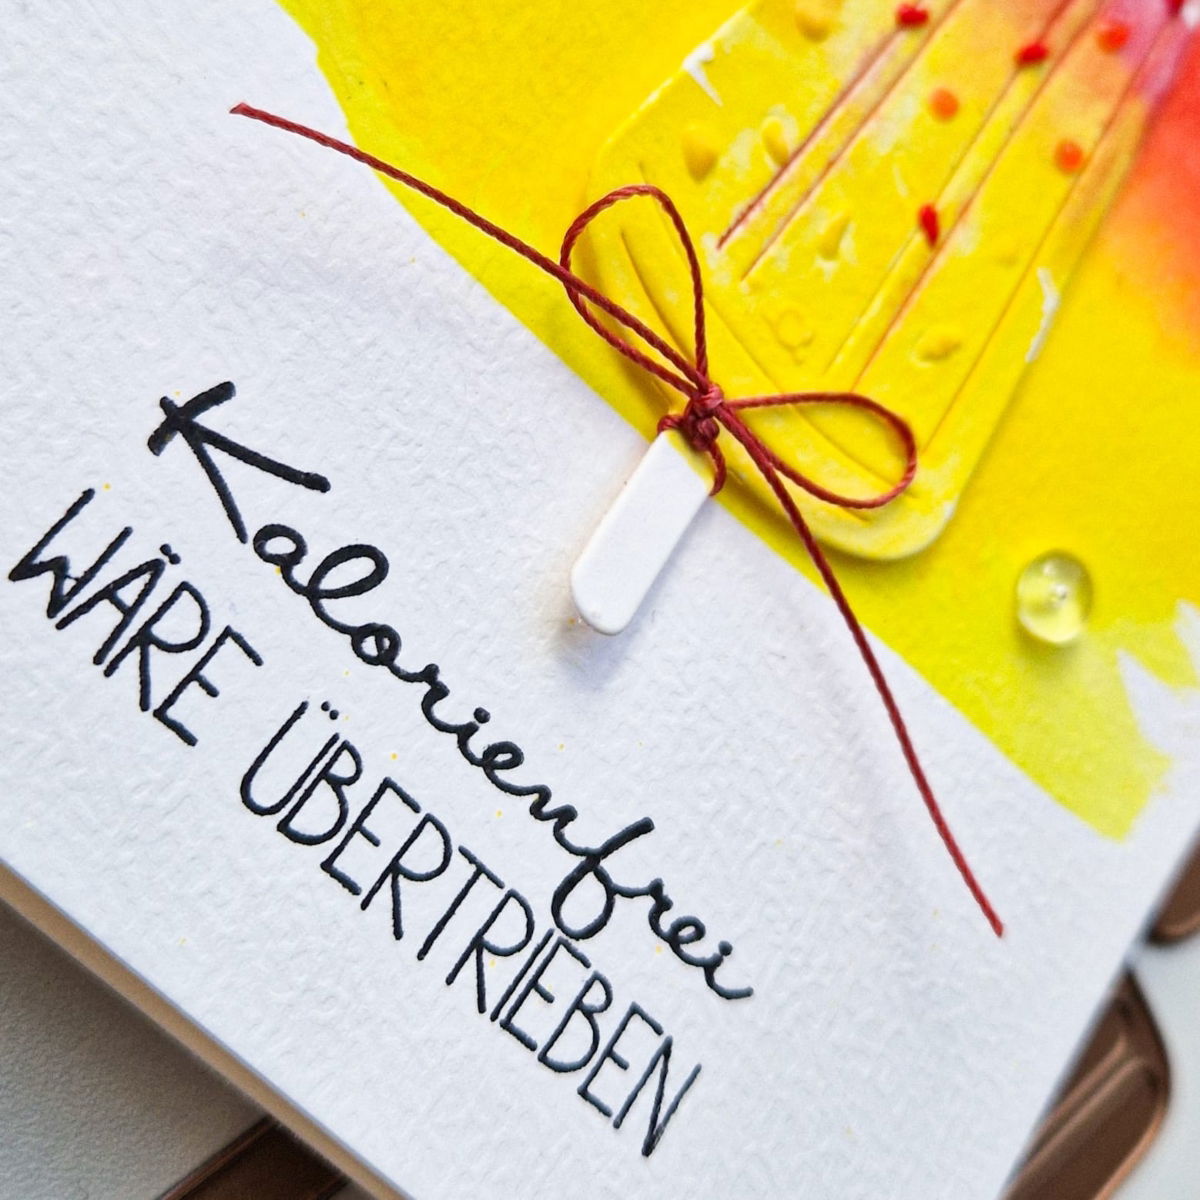 Kalorienfrei
WÄRE ÜBERTRIEBEN